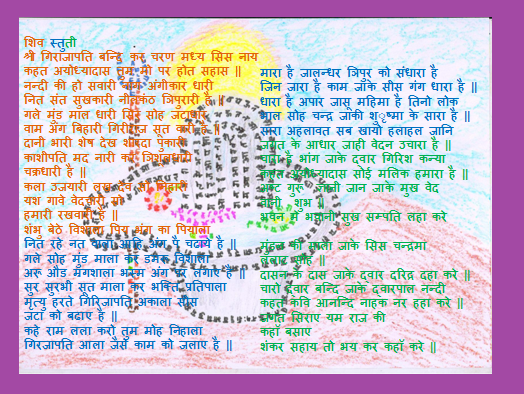 शिव स्तुती
श्री गिराजापति बन्दि कर चरण मध्य सिस नाय
कहत अयोध्यादास तुम मो पर होत सहास ॥
नन्दी की हो सवारी अंगीकार धारी
नित संत सुखकारी नीलकंठ त्रिपुरारी है ॥
गले मुंड माल धारी सिर सोह जटाधारी
वाम अंग बिहारी गिरिजा सूत वारी है ॥
दानी भारी शेष देख शारदा पुकारी
काशीपति मद नारी कर त्रिशूलधारी
चक्रधारी है ॥
कला उजयारी लख देव सो निहारी
यश गावे वेदचारी सो
हमारी रखवारी है ॥
शंभू बेठे विशाला पिये भंग का पियाला
नित रहे मतवाला आहि अंग पे चढाये है ॥
गले सोह मुंड माला कर डमरू विशाला
अरू ओड मगशाला भस्म अंग पर लगाए है ॥
सुर सुरभी सूत माला कर भक्ति प्रतिपाला
मृत्यु हरत गिरिजापति अकाला सीस
जटा को बढाए है ॥
कहे राम लला करो तुम मोह निहाला
गिरजापति आला जैसे काम को जलाए है ॥
मारा है जालन्धर त्रिपुर को संधारा है
जिन जारा है काम जाके सीस गंग धारा है ॥
धारा है अपार जासू महिमा है तिनो लोक
भाल सोह चन्द्र जाकी के सारा है ॥
सारा अहलावत सब खायो हलाहल जानि
जगत के आधार जाही वेदन उचारा है ॥
है भांग जाके दवार गिरिश कन्या
कहत अयोध्यादास सोई मलिक हमारा है ॥
अष्ट गुरू जानी जान जाके मुख वेद
शुभ ॥
भवन में भवानी सुख सम्पति लहा करे
मुंडन की माला जाके सिस चन्द्रमा
ललाट सोह ॥
दासन के दास जाके दवार दरिद्र दहा करे ॥
चारो दवार बन्दि जाके दवारपाल नन्दी
कहत कवि आनन्दि नाहक नर हहा करे ॥
जगत सिराए यम राज की
कहाँ बसाए
शंकर सहाय तो भय कर कहाँ करे ॥